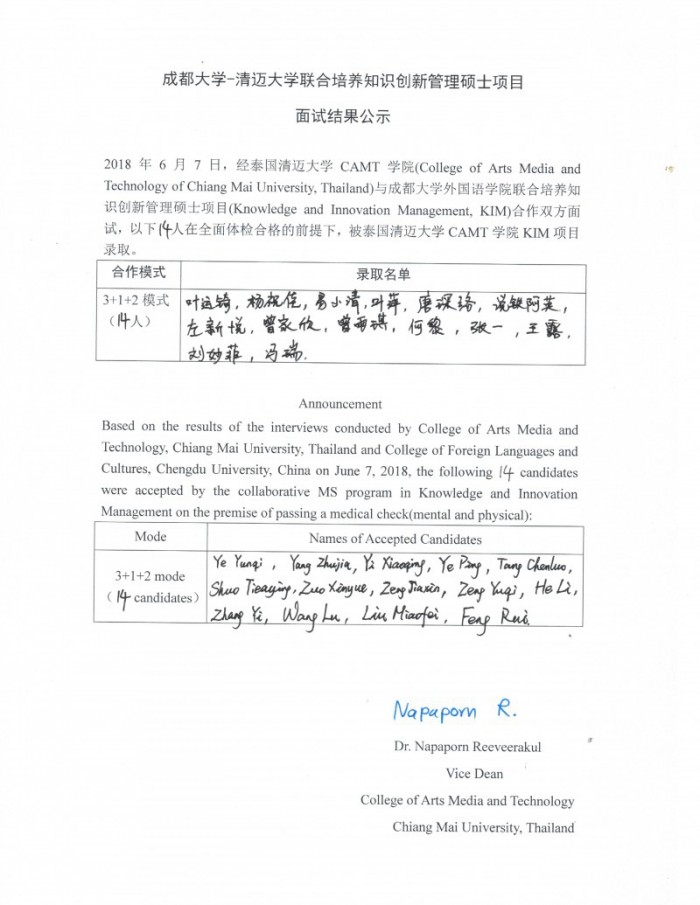 成都大学-清迈大学联合培养知识创新管理硕士项目
面试结果公示
2018 年 6 月 7 日，经泰国清迈大学 CAMT 学院(College of Arts Media and
Technology of Chiang Mai University, Thailand)与成都大学外国语学院联合培养知
识创新管理硕士项目(Knowledge and Innovation Management, KIM)合作双方面
试，以下14人在全面体检合格的前提下，被泰国清迈大学 CAMT 学院 KIM 项目
录取。
合作模式 录取名单
3+1+2 模式 叶运锜，杨祝佳，易小清，叶萍，唐琛珞，说铁阿英，
（14人） 左新悦，曾家欣，曾雨琪，何黎，张一，王露，
刘妙菲，冯瑞.
Announcement
Based on the results of the interviews conducted by College of Arts Media and
Technology, Chiang Mai University, Thailand and College of Foreign Languages and
Cultures, Chengdu University, China on June 7, 2018, the following 14 candidates
were accepted by the collaborative MS program in Knowledge and Innovation
Management on the premise of passing a medical check(mental and physical):
Mode Names of Accepted Candidates
Ye Yunqi, Yang Zhujia, Yi Xiaoqing, Ye Ping, Tang Chenluo,
3+1+2 mode Shuo Tieaying, Zuo Xinyue, Zeng Jiaxin, Zeng Yuqi, He Li,
（14 candidates） Zhang Yi, Wang Lu, Liu Miaofei, Feng Rui.
Napaporn R.
Dr. Napaporn Reeveerakul
Vice Dean
College of Arts Media and Technology
Chiang Mai University, Thailand